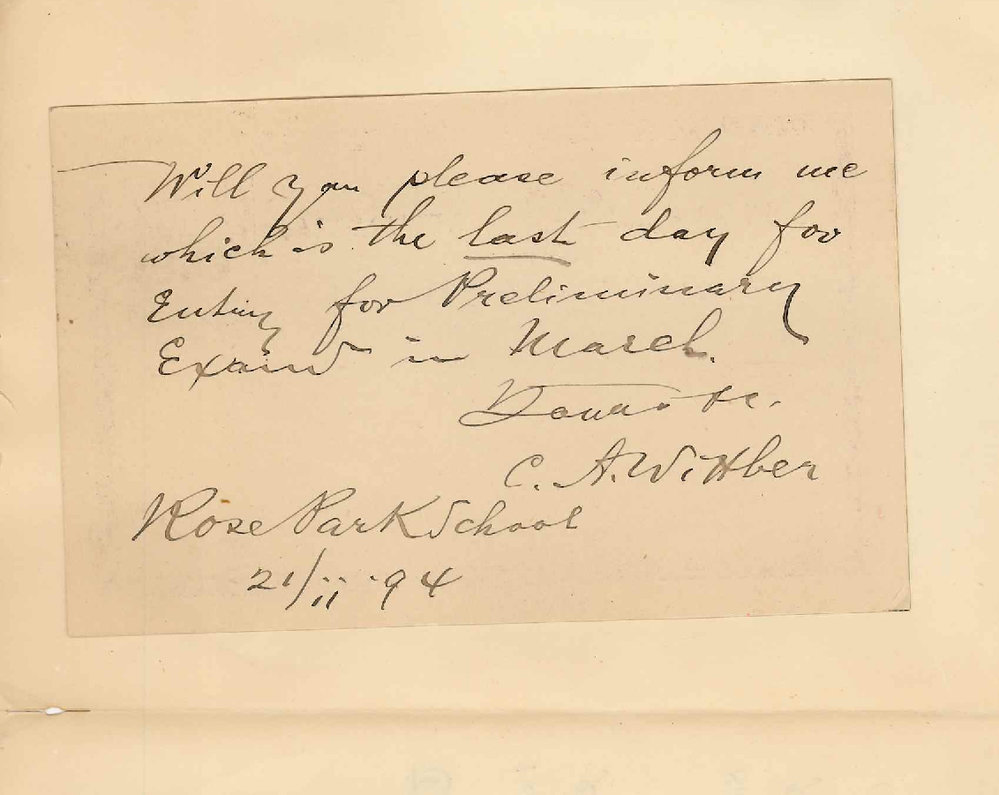 Will you please inform me
which is the last day for
Entry for Preliminary
Exam in March.
Yours &c.
C. A. Wittber
Rose Park School
21/ii.94